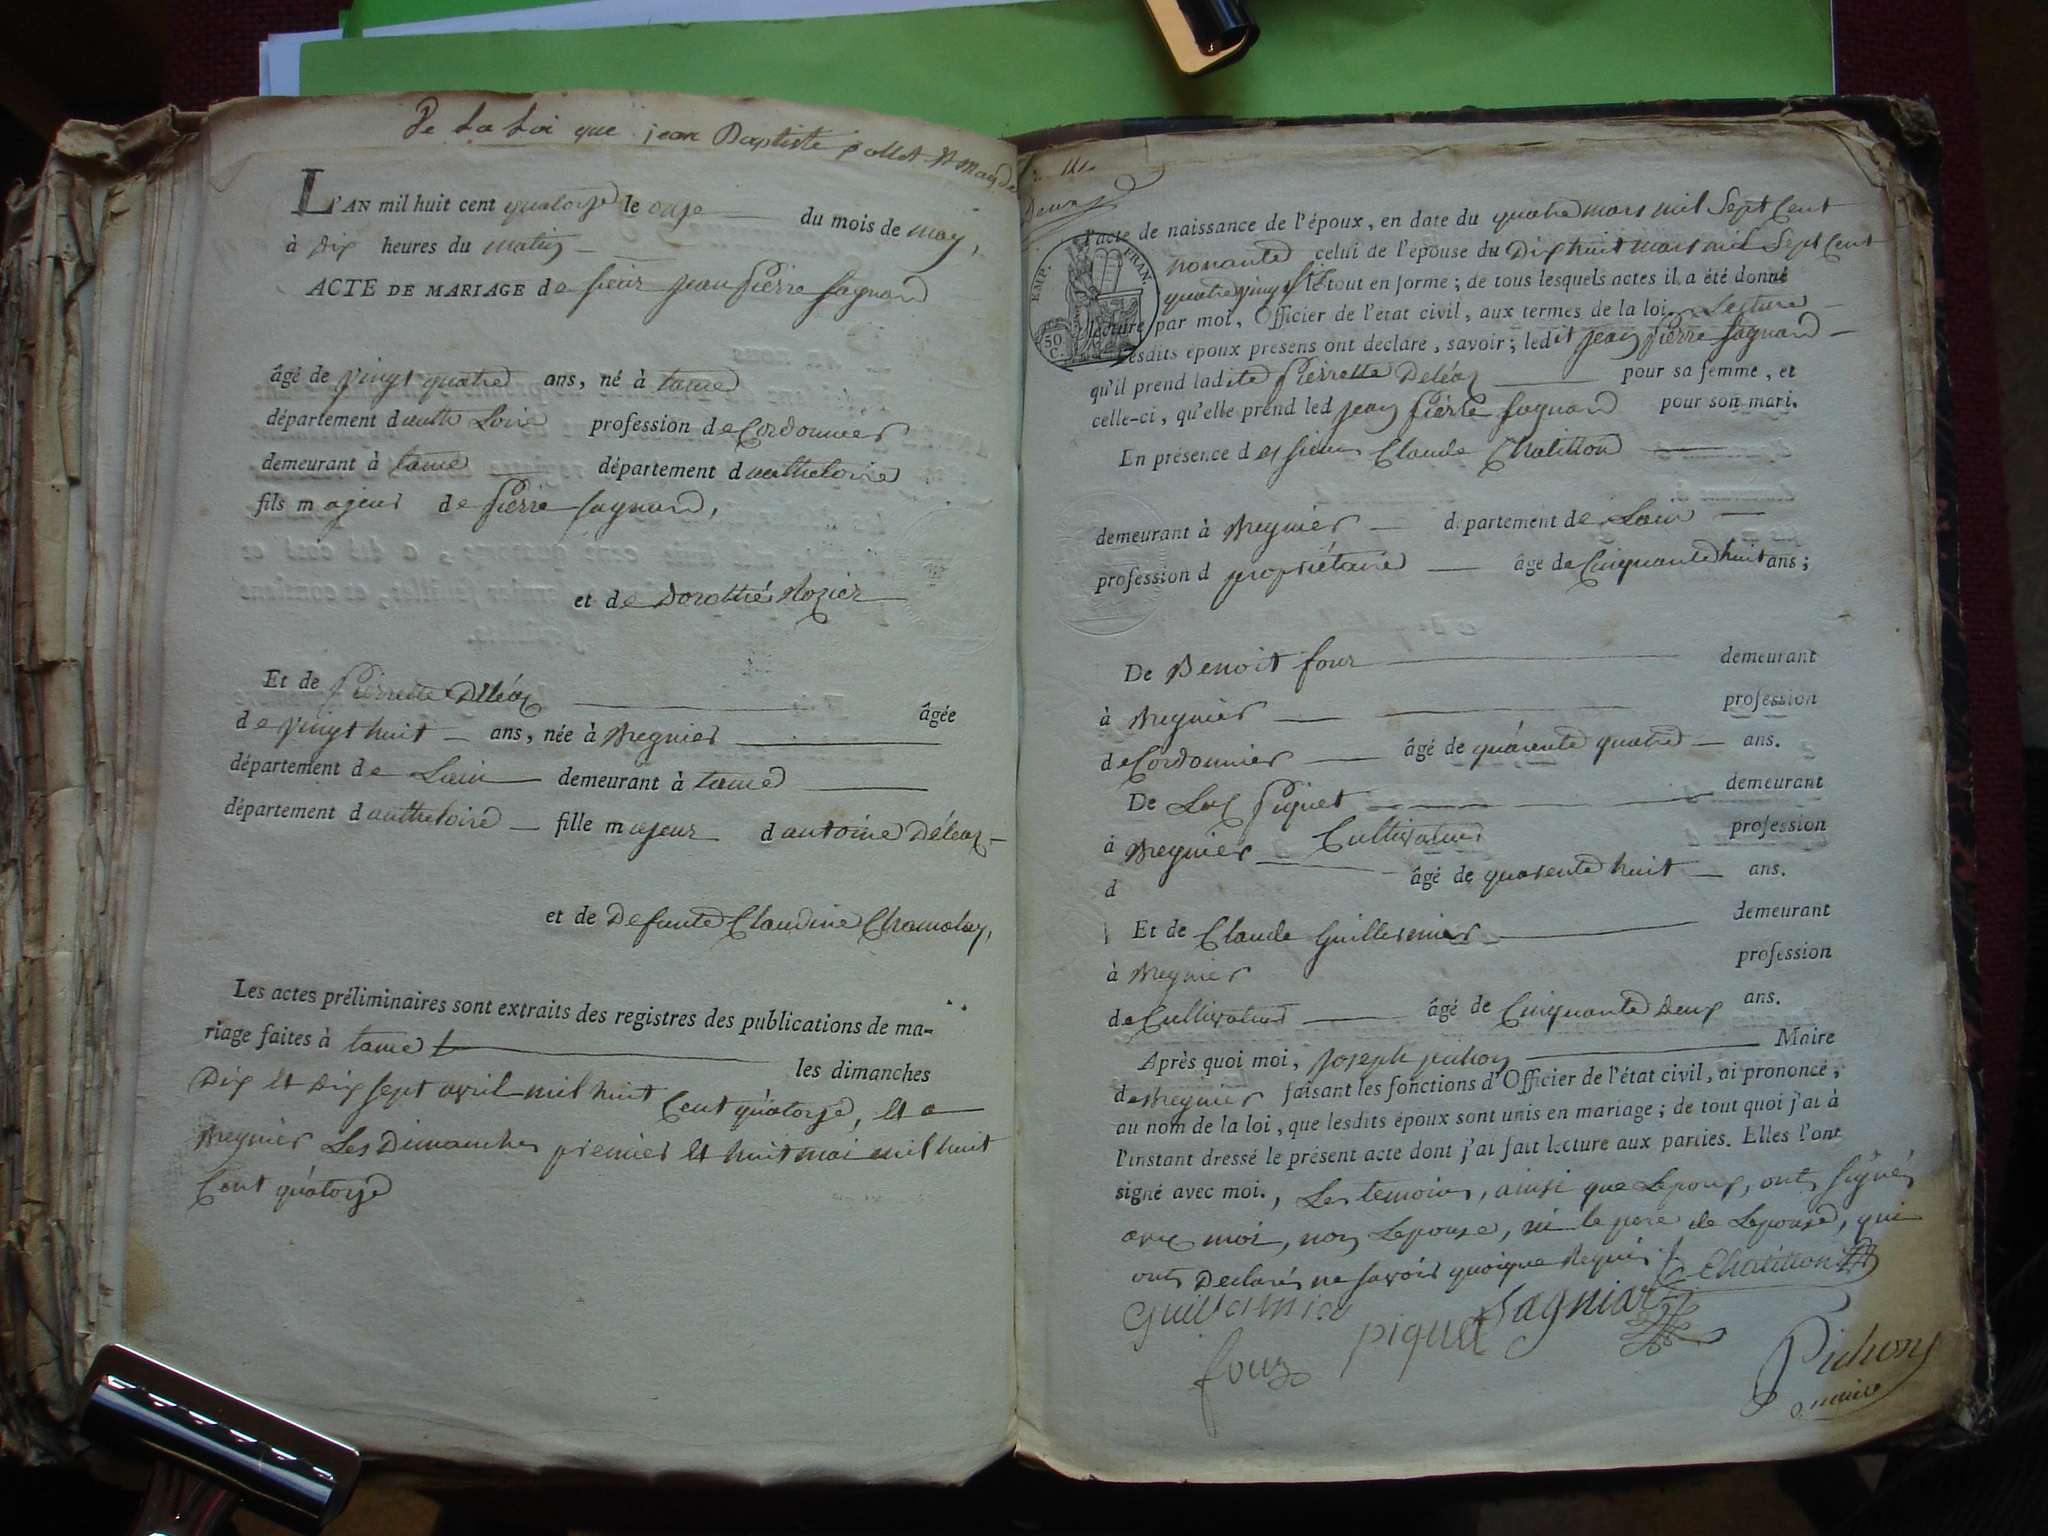 De La Loi que jean Baptiste
L'AN mil huit cent quatorze le onze du mois de may,
à Dix heures du matin
ACTE DE MARIAGE de sieur jean Pierre Sagnard
âgé de vingt quatre ans, né à tance
département d'authe Loire profession de Cordonnier
demeurant à tance département d'autheloire
fils majeur de Pierre Sagnard,
et de Dorothé Rozier
Et de Pierrette Deléaz âgée
de vingt huit ans, née à Meynier
département de Lain demeurant à tance
département d'autheloire fille majeur d'antoine Deléaz
et de Defunte Claudine Chamolay,
Les actes préliminaires sont extraits des registres des publications de ma-
riage faites à tance les dimanches
Dix et Dix sept avril mil huit Cent quatorze, et a
Meynier Les Dimanches premier et huit mai mil huit
Cent quatorze
Deux
EMP. FRAN.
50 C.
l'acte de naissance de l'époux, en date du quatre mars mil Sept Cent
nonante celui de l'épouse du Dix huit mars mil Sept Cent
quatre vingt six le tout en forme ; de tous lesquels actes il a été donné
lecture par moi, Officier de l'état civil, aux termes de la loi, Lecture
Lesdits époux présens ont déclaré, savoir ; ledit jean Pierre Sagnard
qu'il prend ladite Pierrette Deléaz pour sa femme, et
celle-ci, qu'elle prend led jean Pierre Sagnard pour son mari.
En présence des sieurs Claude Chatitton
demeurant à Meynier département de Lain
profession d propriétaire âgé de Cinquante huit ans ;
De Benoit four demeurant
à Meynier profession
de Cordonnier âgé de quarente quatre ans.
De Luc Piquet demeurant
à Meynier Cultivateur profession
d âgé de quarente huit ans.
Et de Claude Guillermier demeurant
à Meynier profession
de Cultivateur âgé de Cinquante Deux ans.
Après quoi moi, Joseph pichon Maire
de Meynier faisant les fonctions d'Officier de l'état civil, ai prononcé,
au nom de la loi, que lesdits époux sont unis en mariage ; de tout quoi j'ai à
l'instant dressé le présent acte dont j'ai fait lecture aux parties. Elles l'ont
signé avec moi., Les temoins, ainsi que Lepoux, ont signés
avec moi, non Lepouse, ni le pere de Lepouse, qui
ont Declarés ne savoir quoique Requis Chatitton
Guillermier piquet Sagniard
four Pichon
maire